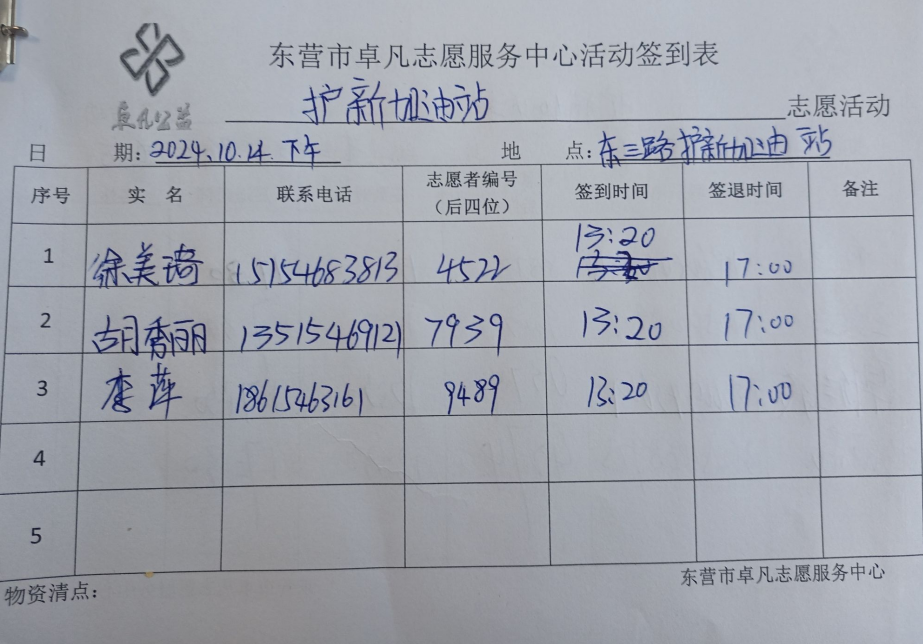 东营市卓凡志愿服务中心活动签到表
卓凡公益
护新加油站 志愿活动
日 期: 2024.10.14.下午 地 点: 东三路护新加油站
序号 实 名 联系电话 志愿者编号（后四位） 签到时间 签退时间 备注
1 徐美琦 15154683813 4522 13:20 17:00
2 胡秀丽 13515469121 7939 13:20 17:00
3 李萍 18615463161 9489 13:20 17:00
4
5
物资清点：
东营市卓凡志愿服务中心